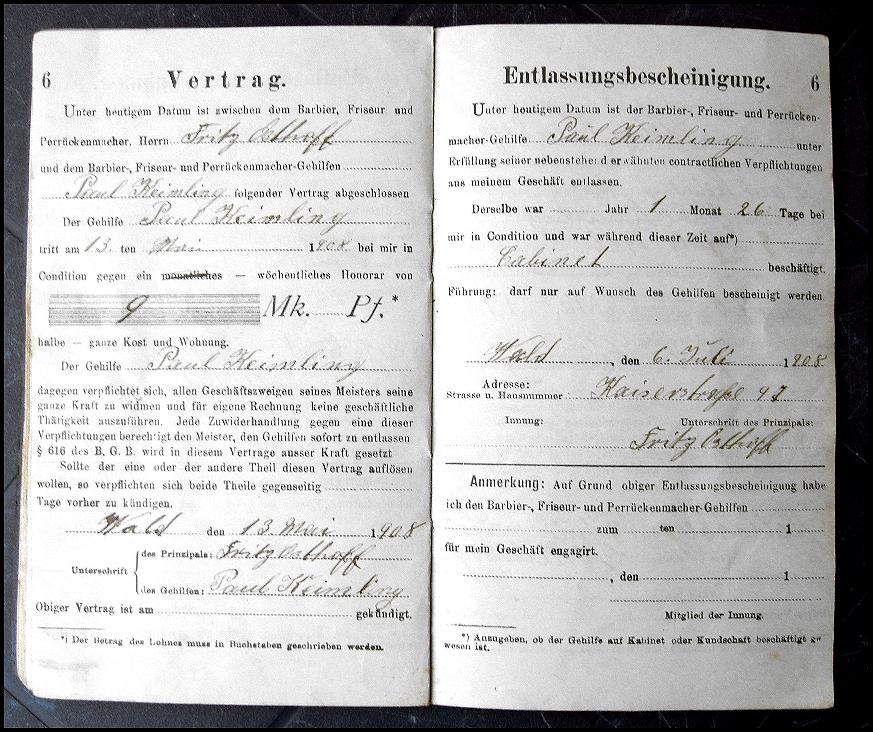 6
Vertrag.
Unter heutigem Datum ist zwischen dem Barbier, Friseur und
Perrückenmacher, Herrn Fritz Osthoff
und dem Barbier-, Friseur- und Perrückenmacher-Gehilfen
Paul Keimling folgender Vertrag abgeschlossen
Der Gehilfe Paul Keimling
tritt am 13. ten Mai 1908 bei mir in
Condition gegen ein monatliches — wöchentliches Honorar von
9 Mk. Pf.*
halbe — ganze Kost und Wohnung.
Der Gehilfe Paul Keimling
dagegen verpflichtet sich, allen Geschäftszweigen seines Meisters seine
ganze Kraft zu widmen und für eigene Rechnung keine geschäftliche
Thärigkeit auszuführen. Jede Zuwiderhandlung gegen eine dieser
Verpflichtungen berechtigt den Meister, den Gehilfen sofort zu entlassen
§ 616 des B. G. B. wird in diesem Vertrage ausser Kraft gesetzt
Sollte der eine oder der andere Theil diesen Vertrag auflösen
wollen, so verpflichten sich beide Theile gegenseitig
Tage vorher zu kündigen.
Wald den 13. Mai 1908
Unterschrift
des Prinzipals: Fritz Osthoff
des Gehilfen: Paul Keimling
Obiger Vertrag ist am gekündigt.
*) Der Betrag des Lohnes muss in Buchstaben geschrieben werden.
Entlassungsbescheinigung.
6
Unter heutigem Datum ist der Barbier-, Friseur- und Perrücken-
macher-Gehilfe Paul Keimling unter
Erfüllung seiner nebenstehend erwähnten contractlichen Verpflichtungen
aus meinem Geschäft entlassen.
Derselbe war Jahr 1 Monat 26 Tage bei
mir in Condition und war während dieser Zeit auf*)
Cabinet beschäftigt.
Führung: darf nur auf Wunsch des Gehilfen bescheinigt werden.
Wald, den 6. Juli 1908
Adresse:
Strasse u. Hausnummer: Kaiserstraße 97
Innung: Unterschrift des Prinzipals:
Fritz Osthoff
Anmerkung: Auf Grund obiger Entlassungsbescheinigung habe
ich den Barbier-, Friseur- und Perrückenmacher-Gehilfen
zum ten 1
für mein Geschäft engagirt.
, den 1
Mitglied der Innung.
*) Anzugeben, ob der Gehilfe auf Kabinet oder Kundschaft beschäftigt ge
wesen ist.